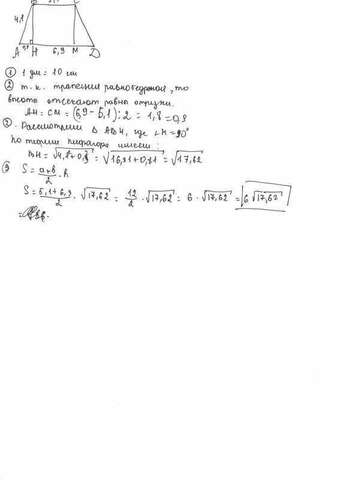 4,1
A H 6,9 M D
① 1 дм = 10 см
② т.к. трапеция равнобедренная, то
высоты отсекают равные отрезки.
AH = CM = (6,9 - 5,1) : 2 = 1,8 = 0,9
③. Рассмотрим Δ ABH, где ∠H = 90°
По теореме Пифагора имеем:
BH = √4,1²+0,9 = √16,81+0,81 = √17,62
S = a+b/2 · h
S = 5,1+6,9/2 · √17,62 = 12/2 · √17,62 = 6 · √17,62 = 6√17,62